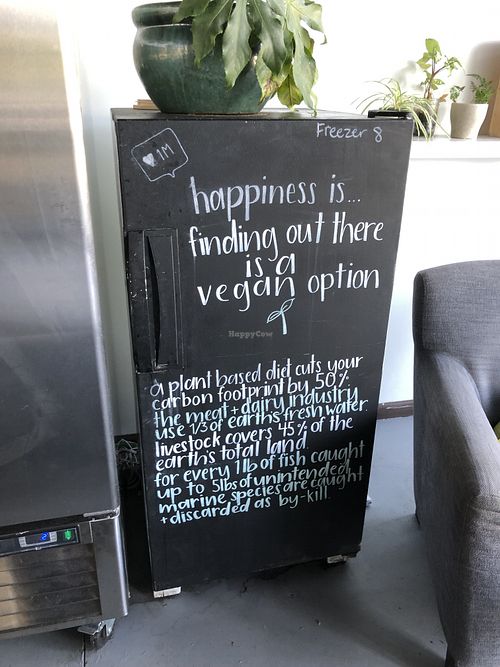 Freezer 8
♥ 1M
happiness is...
finding out there
is a
vegan option
HappyCow
a plant based diet cuts your
carbon footprint by 50%
the meat + dairy industry
use 1/3 of earth's fresh water.
livestock covers 45% of the
earth's total land
for every 1 lb of fish caught
up to 5lbs of unintended
marine species are caught
+ discarded as by-kill.
2